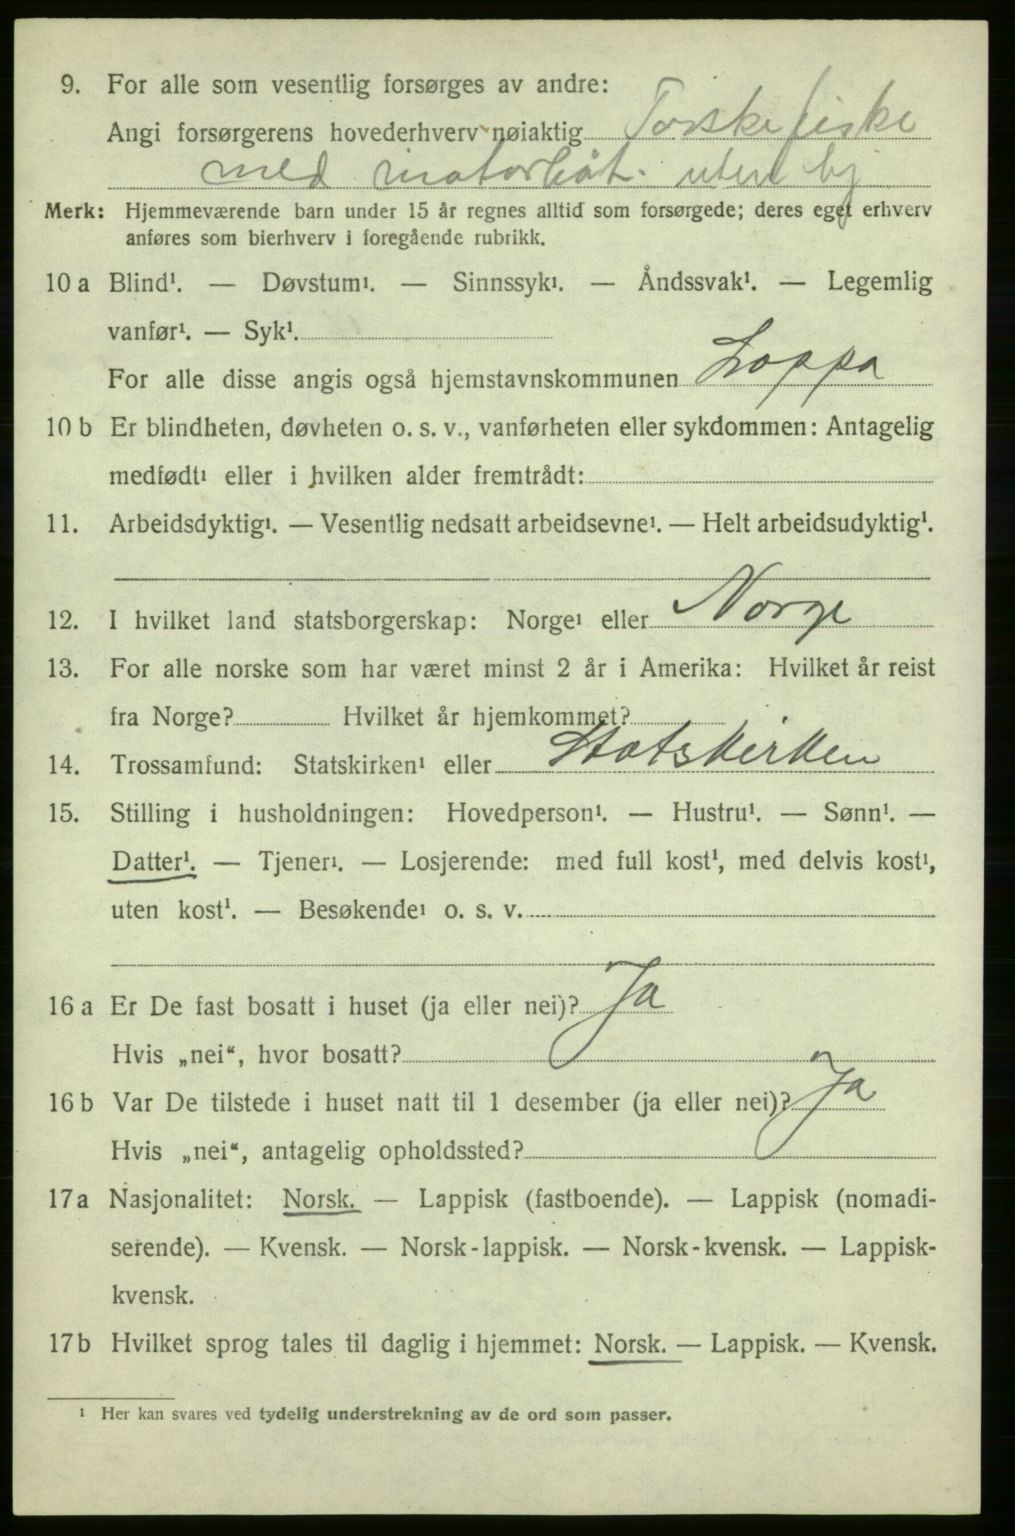 9. For alle som vesentlig forsørges av andre:
Angi forsørgerens hovederhverv nøiaktig Torskefiske
med motorbåt. uten
Merk: Hjemmeværende barn under 15 år regnes alltid som forsørgede; deres eget erhverv
anføres som bierhverv i foregående rubrikk.
10 a Blind¹. — Døvstum¹. — Sinnssyk¹. — Åndssvak¹. — Legemlig
vanfør¹. — Syk¹.
For alle disse angis også hjemstavnskommunen Loppa
10 b Er blindheten, døvheten o. s. v., vanførheten eller sykdommen: Antagelig
medfødt¹ eller i hvilken alder fremtrådt:
11. Arbeidsdyktig¹. — Vesentlig nedsatt arbeidsevne¹. — Helt arbeidsudyktig¹.
12. I hvilket land statsborgerskap: Norge¹ eller Norge
13. For alle norske som har været minst 2 år i Amerika: Hvilket år reist
fra Norge? Hvilket år hjemkommet?
14. Trossamfund: Statskirken¹ eller Statskirken
15. Stilling i husholdningen: Hovedperson¹. — Hustru¹. — Sønn¹. —
Datter¹. — Tjener¹. — Losjerende: med full kost¹, med delvis kost¹,
uten kost¹. — Besøkende¹ o. s. v.
16 a Er De fast bosatt i huset (ja eller nei)? Ja
Hvis „nei“, hvor bosatt?
16 b Var De tilstede i huset natt til 1 desember (ja eller nei)? Ja
Hvis „nei“, antagelig opholdssted?
17 a Nasjonalitet: Norsk. — Lappisk (fastboende). — Lappisk (nomadi-
serende). — Kvensk. — Norsk-lappisk. — Norsk-kvensk. — Lappisk-
kvensk.
17 b Hvilket sprog tales til daglig i hjemmet: Norsk. — Lappisk. — Kvensk.
¹ Her kan svares ved tydelig understrekning av de ord som passer.